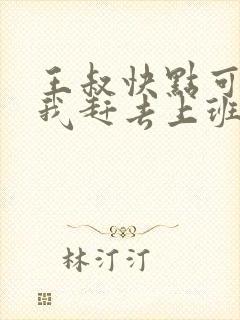 王叔快點可
我赶去上班
林汀汀